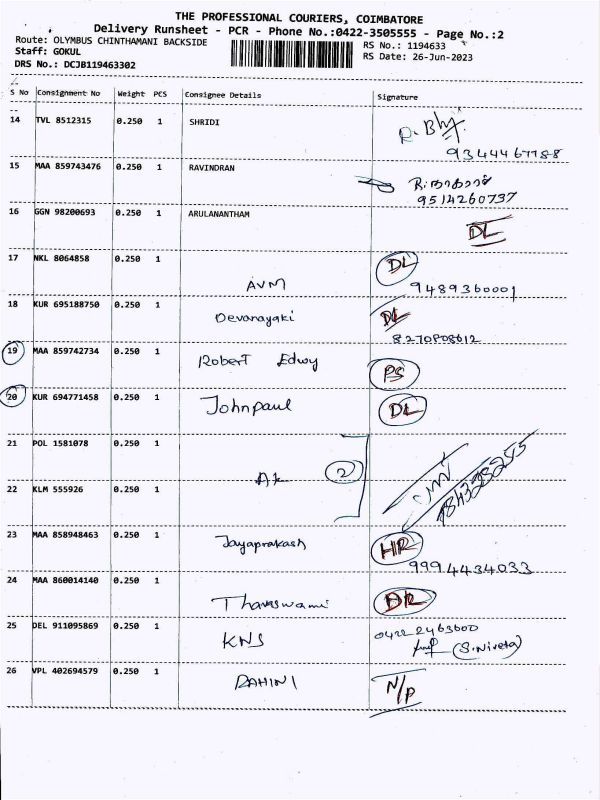 THE PROFESSIONAL COURIERS, COIMBATORE
Delivery Runsheet - PCR - Phone No.:0422-3505555 - Page No.:2
Route: OLYMBUS CHINTHAMANI BACKSIDE
RS No.: 1194633
Staff: GOKUL
RS Date: 26-Jun-2023
DRS No.: DCJB119463302
S No Consignment No Weight PCS Consignee Details Signature
14 TVL 8512315 0.250 1 SHRIDI
9344467788
15 MAA 859743476 0.250 1 RAVINDRAN
9514260737
16 GGN 98200693 0.250 1 ARULANANTHAM
DL
17 NKL 8064858 0.250 1 AVM DL
9489360001
18 KUR 695188750 0.250 1 Devanayaki DL
8270808612
19 MAA 859742734 0.250 1 Robert Edwy PS
20 KUR 694771458 0.250 1 Johnpaul DL
21 POL 1581078 0.250 1
AK 2
22 KLM 555926 0.250 1
23 MAA 858948463 0.250 1 Jayaprakash HR
9994434033
24 MAA 860014140 0.250 1
25 DEL 911095869 0.250 1 KNS 0422 2463600
(S.Niveta)
26 VPL 402694579 0.250 1 DAHINI N/P